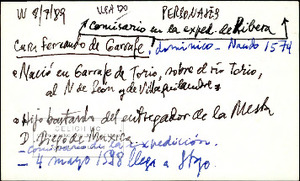 W 8/7/89 USADO PERSONAJES
Comisario en la exped. de Ribera
Cura Fernando de Garrafe, dominico - Nació 1574
• Nació en Garrafe de Torio, sobre el río Torio,
al N de León y de Villaquilambre
• Hijo bastardo del entregador de la Mesta
D. Diego de
- Comisario de la expedición.
- 4 mayo 1598 llega a Stgo.